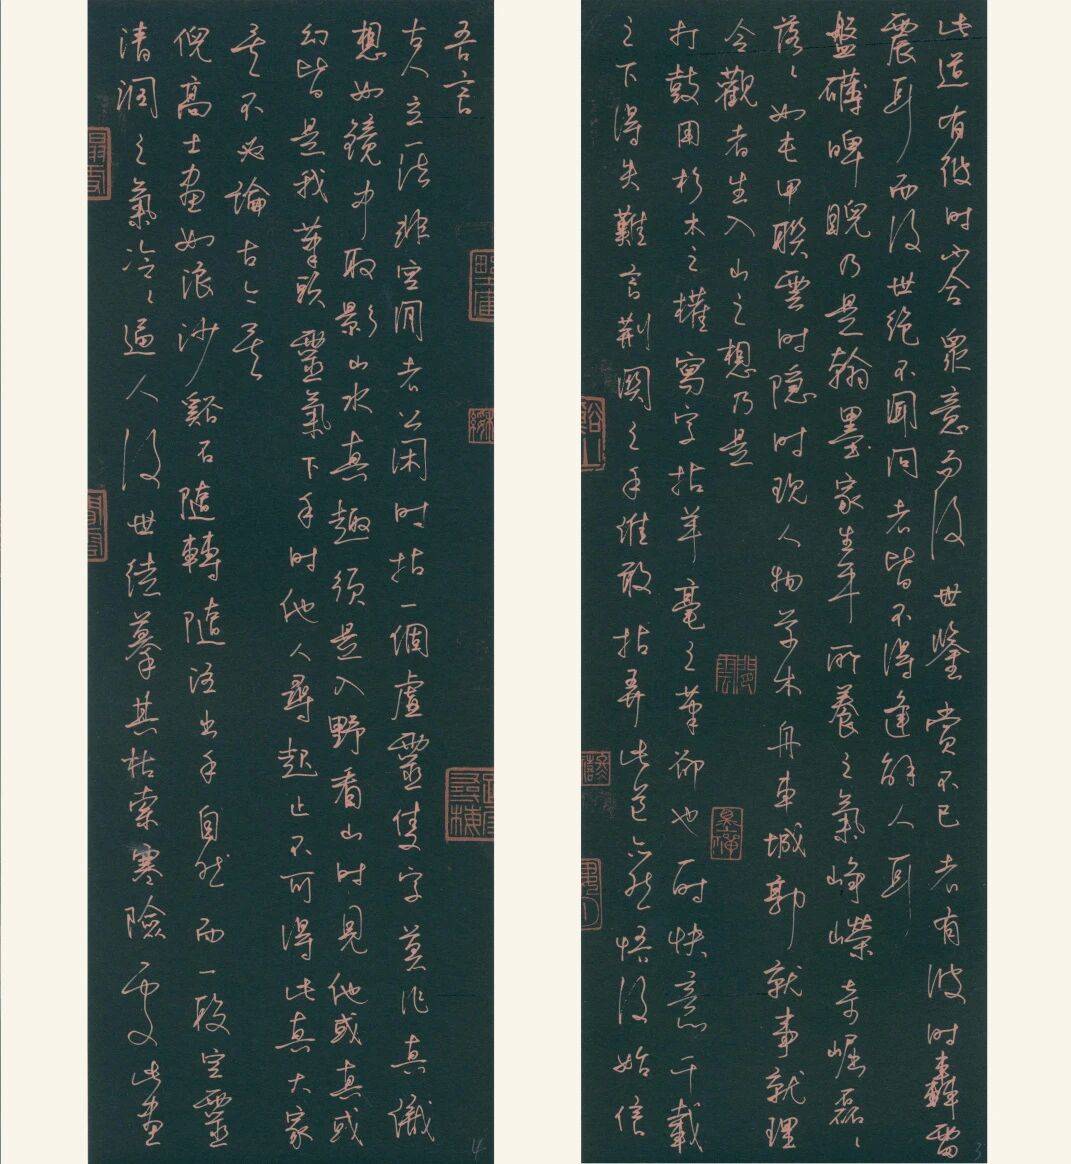 此道有彼時不合眾意而後世鑒賞不已者有彼時轟雷
震耳而後世絕不聞問者皆不得逢解人耳
盤礴睥睨乃是翰墨家生平所養之氣崢嶸奇崛磊磊
落落如屯甲聯雲時隱時現人物草木舟車城郭就事就理
令觀者生入山之想乃是
打鼓用杉木之權寫字拈羊毫之筆卻也一時快意千載
之下得失難言荊關之手誰敢拈弄此道亦無悟後始信
吾言
古人立一法非空閒者公閑時拈一個虛靈隻字莫作真儀
想如鏡中取影山水真趣須是入野看山時見他或真或
幻皆是我筆頭靈氣下手時他人尋起止不可得此真大家
矣不必論古今矣
倪高士畫如浪沙谿石隨轉隨注出乎自然而一段空靈
清潤之氣冷冷逼人後世徒摹其枯索寒險處此畫
4
3